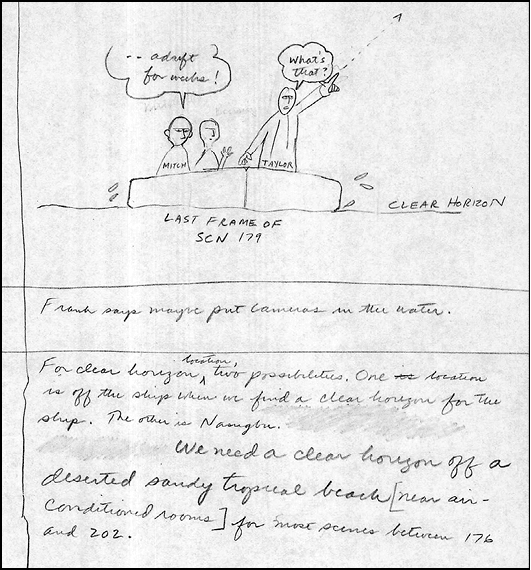 -- adrift
for weeks!
What's
that?
MITCH
TAYLOR
CLEAR HORIZON
LAST FRAME OF
SCN 179
Frank says maybe put cameras in the water.
For clear horizon location, two possibilities. One is location
is off the ships when we find a clear horizon for the
ship. The other is
We need a clear horizon off a
deserted sandy tropical beach [near air-
conditioned rooms] for most scenes between 176
and 202.